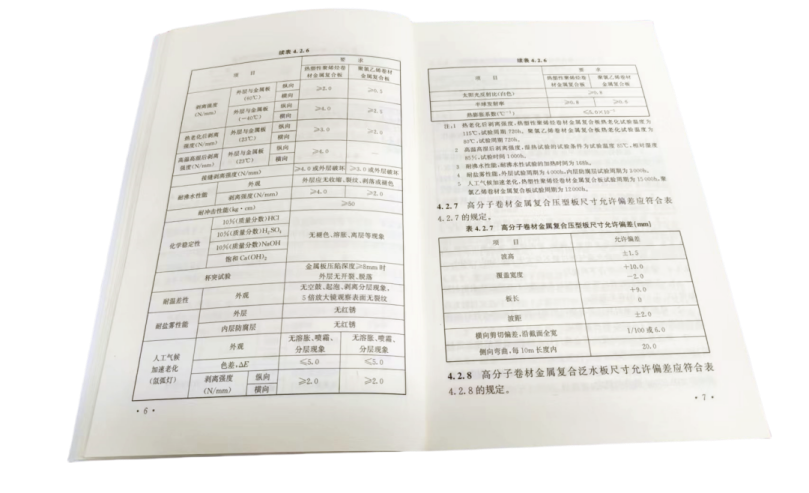 续表 4.2.6
项 目
要 求
热塑性聚烯烃卷材金属复合板
聚氯乙烯卷材金属复合板
剥离强度 (N/mm)
外层与金属板 (65℃)
纵向
横向
≥2.0
外层与金属板 (-40℃)
纵向
横向
≥4.0
热老化后剥离强度(N/mm)
外层与金属板 (23℃)
纵向
横向
≥3.0
高温高湿后剥离强度(N/mm)
外层与金属板 (23℃)
纵向
横向
≥4.0
≥4.0 或外层破坏
≥3.0 或外层破坏
耐沸水性能
外观
外层应无收缩、裂纹、剥落或褪色
剥离强度(N/mm)
≥4.0
≥3.0
耐冲击性能(kg·cm)
≥50
化学稳定性
10%(质量分数)HCl
10%(质量分数)H₂SO₄
10%(质量分数)NaOH
饱和 Ca(OH)₂
无褪色、溶胀、离层等现象
杯突试验
金属板压陷深度≥6mm 时
外层无开裂、脱落
耐温差性
外观
无空鼓、起泡、剥离分层现象，
5 倍放大镜观察表面无裂纹
耐盐雾性能
外层
无红锈
内层防腐层
无红锈
人工气候加速老化 (氙弧灯)
外观
无溶胀、喷霜、分层现象
无溶胀、喷霜、分层现象
色差，△E
≤5.0
≤5.0
剥离强度 (N/mm)
纵向
横向
≥2.0
≥2.0
· 6 ·
续表 4.2.6
项 目
要 求
热塑性聚烯烃卷材金属复合板
聚氯乙烯卷材金属复合板
太阳光反射比(白色)
≥0.8
半球发射率
≥0.8
热膨胀系数(℃⁻¹)
注：1 热老化后剥离强度，热塑性聚烯烃卷材金属复合板热老化试验温度为
115℃，试验周期 720h。聚氯乙烯卷材金属复合板热老化试验温度为
80℃，试验周期 720h。
2 高温高湿后剥离强度，湿热试验的试验条件为试验温度 85℃，相对湿度
85%，试验时间 1000h。
3 耐沸水性能，耐沸水性试验的加热时间为 168h。
4 耐盐雾性能，外层试验周期为
5 人工气候加速老化，热塑性聚烯烃卷材金属复合板试验周期为
氯乙烯卷材金属复合板试验周期为
4.2.7 高分子卷材金属复合压型板尺寸允许偏差应符合表
4.2.7 的规定。
表 4.2.7 高分子卷材金属复合压型板尺寸允许偏差(mm)
项 目
允许偏差
波高
±1.5
覆盖宽度
+10.0
-2.0
板长
+9.0
0
波距
±2.0
横向剪切偏差，沿截面全宽
1/100 或 6.0
侧向弯曲，每 10m 长度内
20.0
4.2.8 高分子卷材金属复合泛水板尺寸允许偏差应符合表
4.2.8 的规定。
· 7 ·